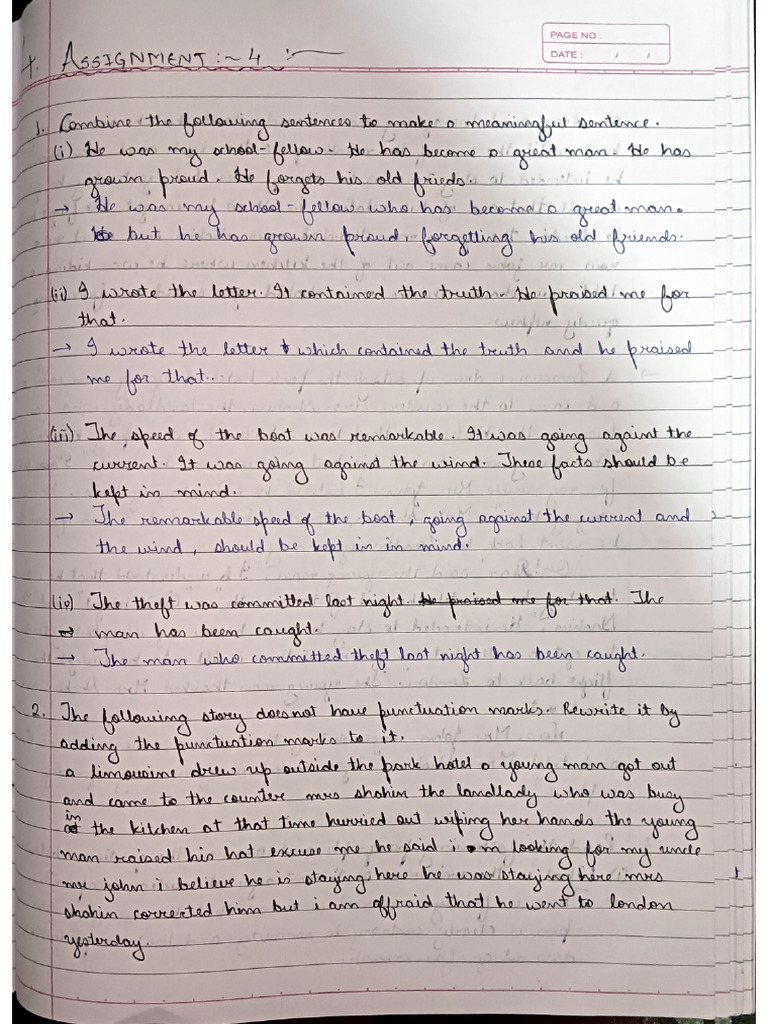 PAGE NO.
DATE: / /
Assignment :~ 4 :~
1. Combine the following sentences to make a meaningful sentence.
(i) He was my school-fellow. He has become a great man. He has
grown proud. He forgets his old frieds.
→ He was my school-fellow who has become a great man.
but he has grown proud, forgetting his old friends.
(ii) I wrote the letter. It contained the truth. He praised me for
that.
→ I wrote the letter which contained the truth and he praised
me for that.
(iii) The speed of the boat was remarkable. It was going againt the
current. It was going against the wind. These facts should be
kept in mind.
→ The remarkable speed of the boat, going against the current and
the wind, should be kept in in mind.
(iv) The theft was committed last night. He praised me for that. The
→ man has been caught.
→ The man who committed theft last night has been caught.
2. The following story doesnot have punctuation marks. Rewrite it by
adding the punctuation marks to it.
a limousine drew up outside the park hotel a young man got out
and came to the counter mrs shahin the landlady who was busy
in the kitchen at that time hurried out wiping her hands the young
man raised his hat excuse me he said i am looking for my uncle
mr john i believe he is staying here he was staying here mrs
shahin corrected him but i am affraid that he went to london
yesterday.